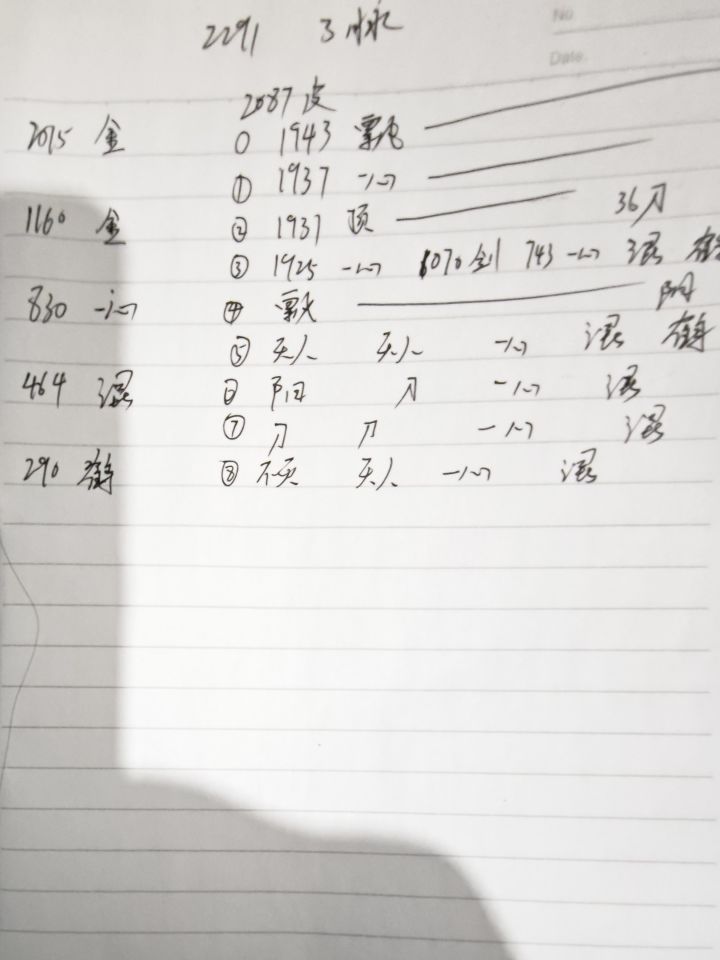 No
Date
2291 3
2087 皮
2075 金 0 1943
① 1937 一心
1160 金 ② 1937 顶 36刀
③ 1925 一心 1070剑 743 一心 混 鹤
830 一心 ④ 阳
⑤ 天人 天人 一心 混 鹤
464 混 ⑥ 阳 刀 一心 混
⑦ 刀 刀 一心 混
290 鹤 ⑧ 不灭 天人 一心 混